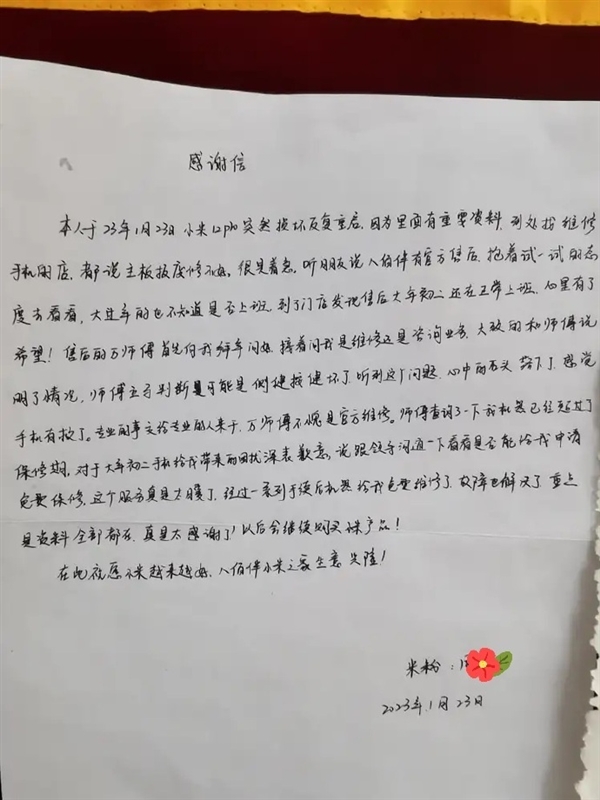 感谢信
本人于23年1月23日小米12pro突然损坏反复重启，因为里面有重要资料，到处找维修
手机的店，都说主板报废修不好，很是着急。听朋友说八佰伴有官方售后，抱着试一试的态
度去看看，大过年的也不知道是否上班，到了门店发现售后大年初二还在正常上班，心里有了
希望！售后的万师傅首先向我新年问好，接着问我是维修还是咨询业务，大致的和师傅说
明了情况，师傅立马判断是可能是侧键按键坏了，听到这个问题，心中的石头落下了，感觉
手机有救了。专业的事交给专业的人来干，万师傅不愧是官方维修。师傅查询了一下我机器已经超过了
保修期，对于大年初二手机给我带来的困扰深表歉意，说跟领导沟通一下看看是否能给我申请
免费保修，这个服务真是太暖了，经过一系列手续后机器给我免费维修了，故障也解决了，重点
是资料全部都在，真是太感谢了！以后会继续购买小米产品！
在此祝愿小米越来越好，八佰伴小米之家生意兴隆！
米粉：
2023年1月23日